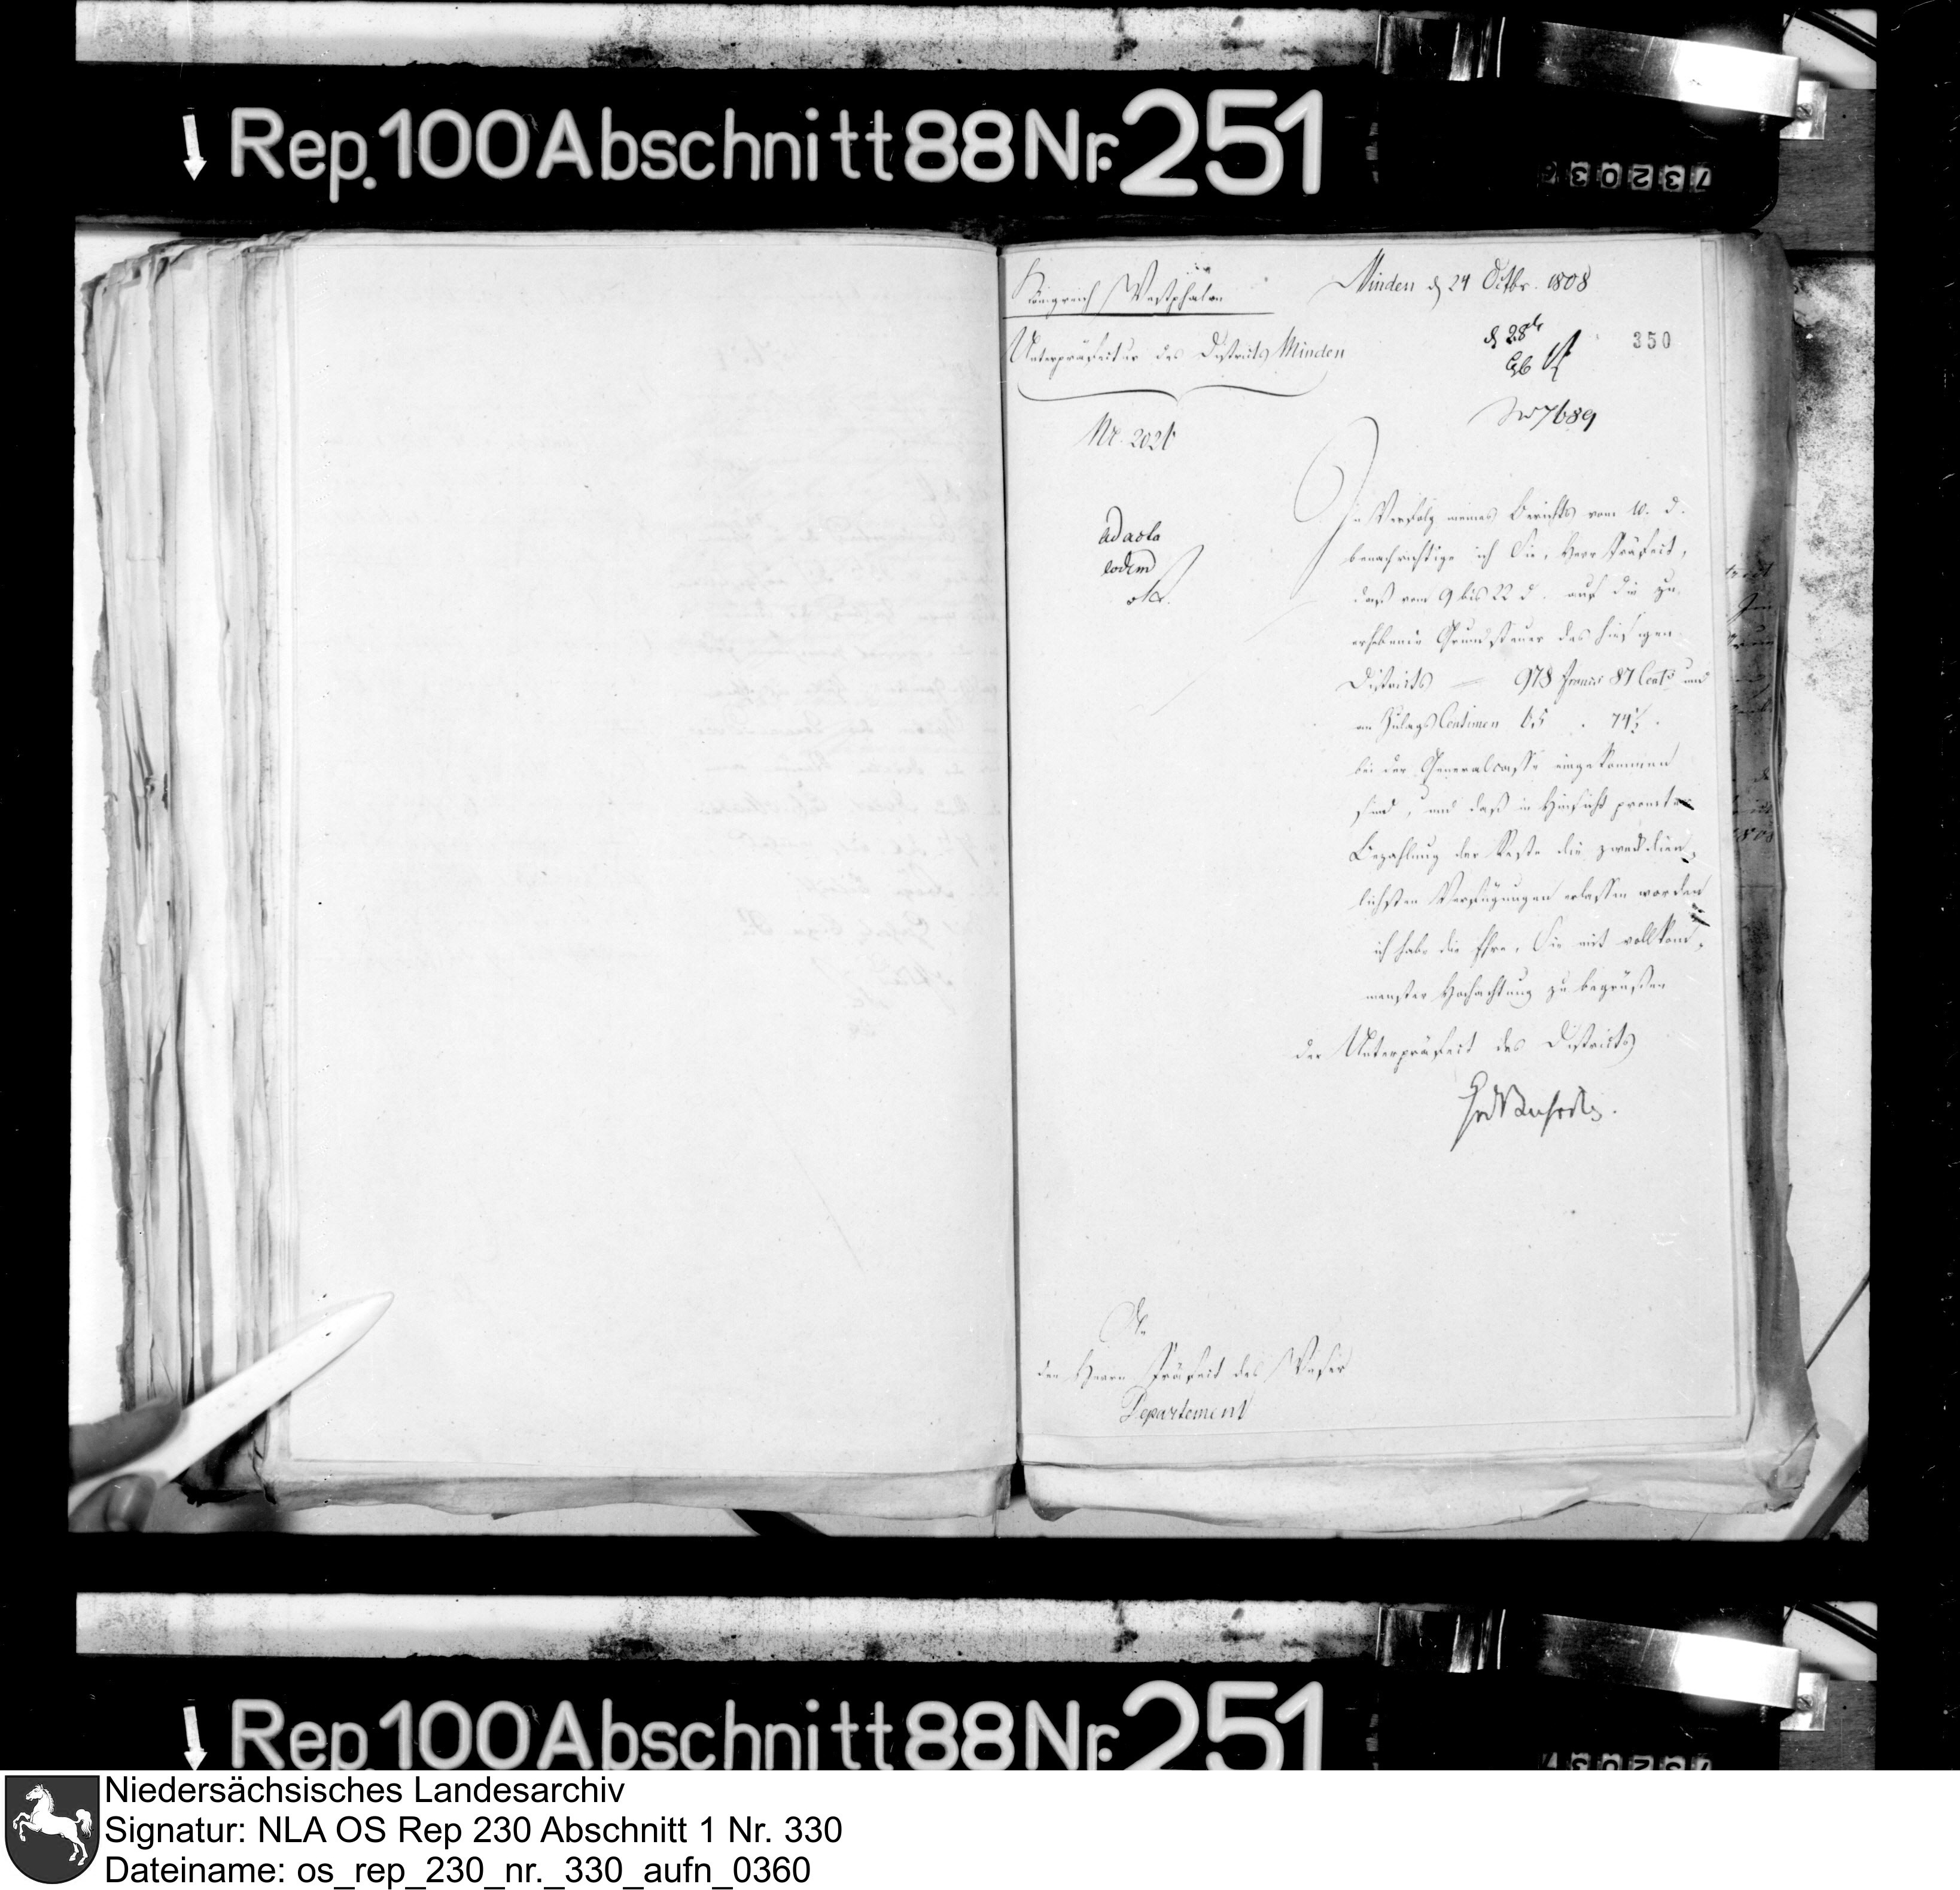 Rep. 100 Abschnitt 88 Nr. 251
Königreich Westphalen
Minden d 24 Octbr. 1808
Unterpräfectur des Districts Minden
d 28ch
350
Nr. 2021
No 7689
ad acta
eodem
In Verfolg meines Berichts vom 10. d.
benachrichtige ich Sie, Herr Präfect,
daß vom 9 bis 22 d. auf die zu
erhebende Grundsteuer des hiesigen
Districts — 978 Francs 87 Cent und
an Zulags Centimen 65 . 74
bei der Generalcasse eingekommen
sind, und daß in Hinsicht promter
Bezahlung der Reste die zweckdien„
lichsten Verfügungen erlassen worden
ich habe die Ehre, Sie mit vollkom„
menster Hochachtung zu begrüßen
der Unterpräfect des Districts
An
den Herrn Präfect des Weser
Departement
Rep. 100 Abschnitt 88 Nr. 251
Niedersächsisches Landesarchiv
Signatur: NLA OS Rep 230 Abschnitt 1 Nr. 330
Dateiname: os_rep_230_nr._330_aufn_0360